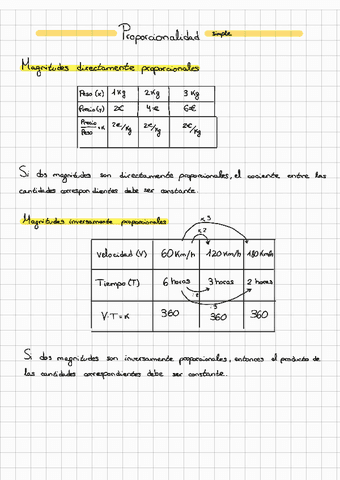 Proporcionalidad simple
Magnitudes directamente proporcionales
Peso (x) 1 Kg 2 Kg 3 Kg
Precio (y) 2€ 4€ 6€
Precio/Peso = K 2€/Kg 2€/Kg 2€/Kg
Si dos magnitudes son directamente proporcionales, el cociente entre las
cantidades correspondientes debe ser constante.
Magnitudes inversamente proporcionales
x 3
x 2
Velocidad (V) 60 Km/h 120 Km/h 180 Km/h
Tiempo (T) 6 horas 3 horas 2 horas
V·T = K 360 360 360
Si dos magnitudes son inversamente proporcionales, entonces el producto de
las cantidades correspondientes debe ser constante.